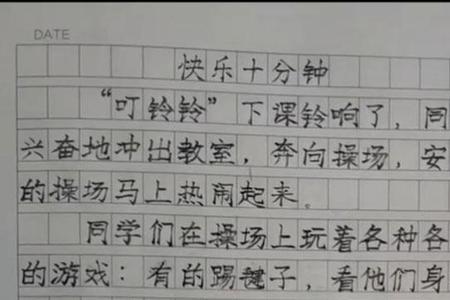 DATE
快乐十分钟
“叮铃铃”下课铃响了，同
兴奋地冲出教室，奔向操场，安
的操场马上热闹起来。
同学们在操场上玩着各种各
的游戏：有的踢毽子，看他们身